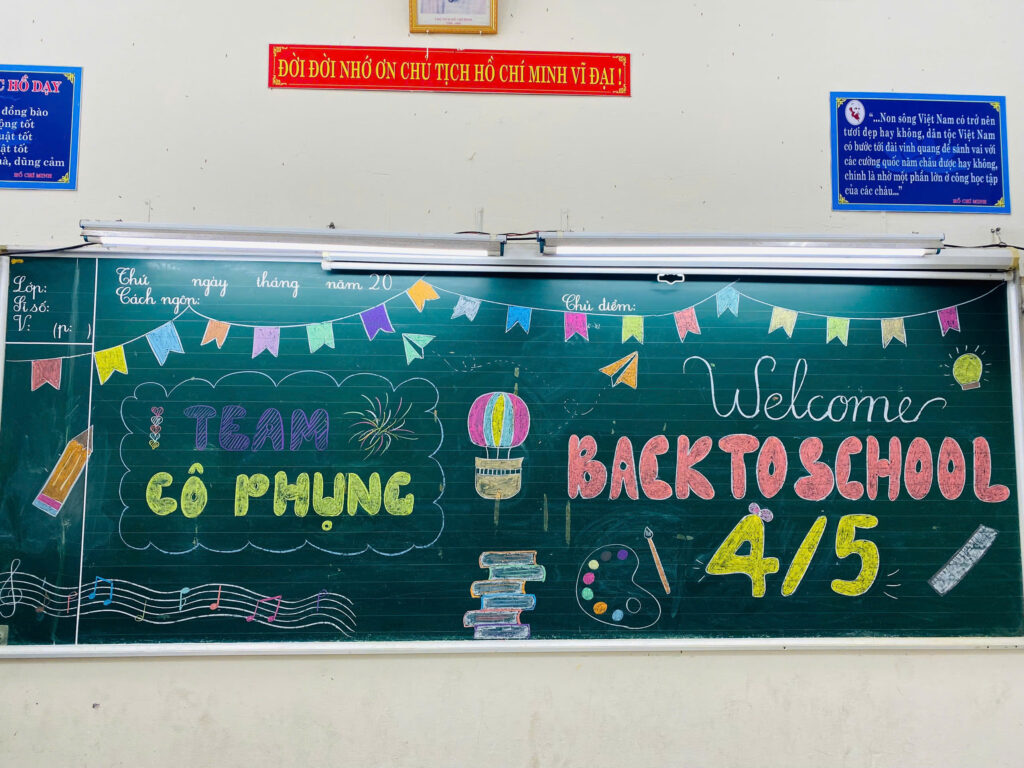 ĐỜI ĐỜI NHỚ ƠN CHỦ TỊCH HỒ CHÍ MINH VĨ ĐẠI !
HỒ DẠY
đồng bào
tốt
tốt
tốt
dũng cảm
HỒ CHÍ MINH
“...Non sông Việt Nam có trở nên
tươi đẹp hay không, dân tộc Việt Nam
có bước tới đài vinh quang để sánh vai với
các cường quốc năm châu được hay không,
chính là nhờ một phần lớn ở công học tập
của các cháu...”
HỒ CHÍ MINH
Lớp:
Sĩ số:
V: (p: )
Thứ ngày tháng năm 20
Cách ngôn:
Chủ điểm:
TEAM
CÔ PHỤNG
Welcome
BACK TO SCHOOL
4/5